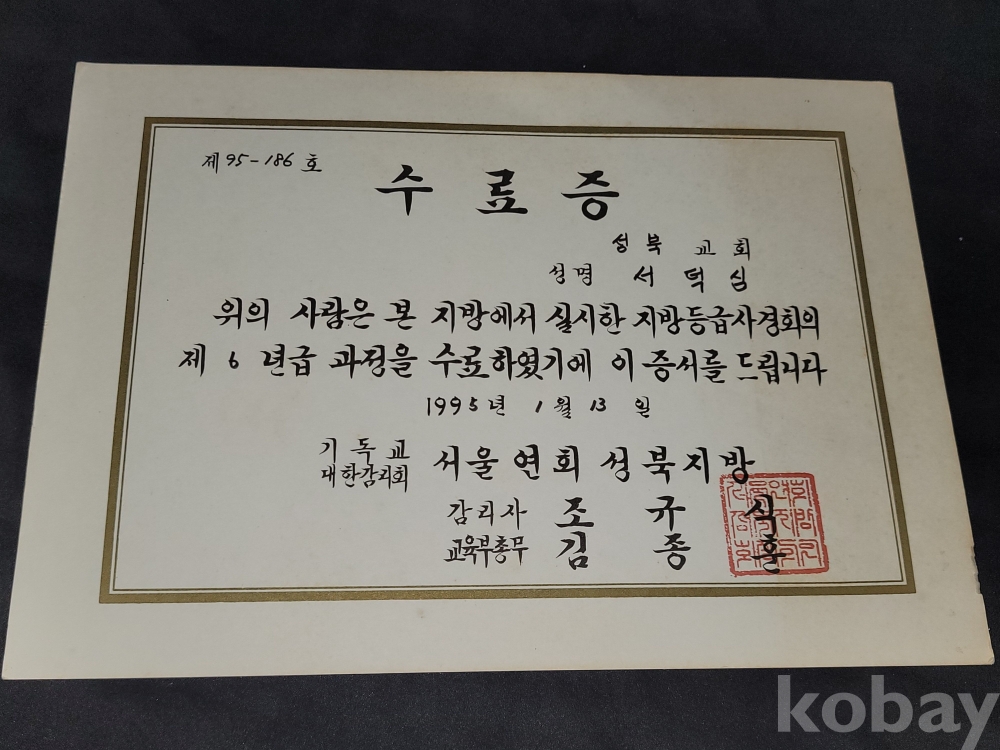 제 95-186 호
수료증
성북 교회
성명 서덕심
위의 사람은 본 지방에서 실시한 지방등급사경회의
제 6 년급 과정을 수료하였기에 이 증서를 드립니다
1995년 1월 13일
기독교 대한감리회 서울연회 성북지방
감리사 조규식
교육부총무 김종훈
kobay